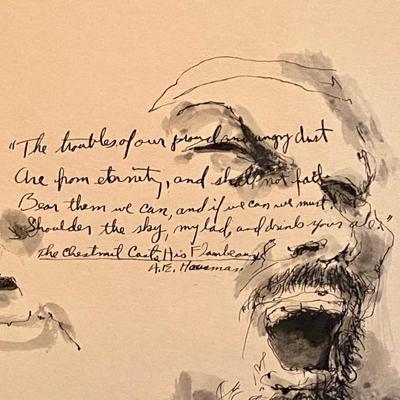 "The troubles of our proud and angry dust
Are from eternity, and shall not fail.
Bear them we can, and if we can we must.
Shoulder the sky, my lad, and drink your ale."
The Chestnut Casts His Flambeaux
A.E. Housman